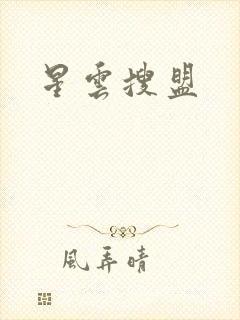 星雲搜盟
風弄晴